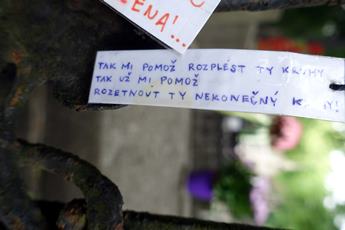 ENA!..
TAK MI POMOŽ ROZPLÉST TY KRUHY
TAK UŽ MI POMOŽ
ROZETNOUT TY NEKONEČNÝ